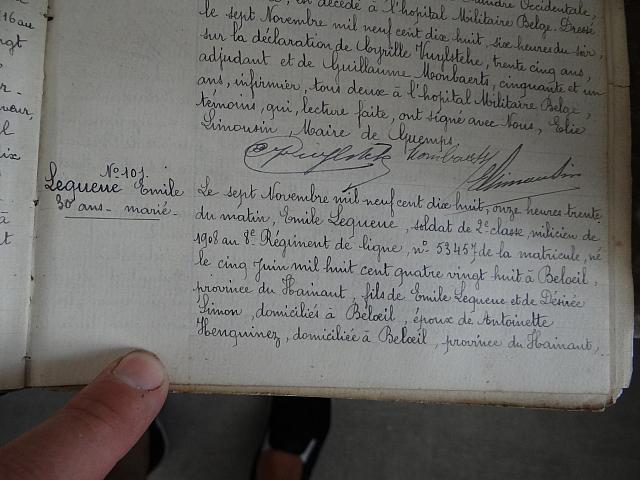 , en décédé à l'hôpital Militaire Belge. Dressé
le sept Novembre mil neuf cent dix huit, six heures du soir,
sur la déclaration de Cyrille Vuylsteke, trente cinq ans,
adjudant et de Guillaume Monbaerts, cinquante et un
ans, infirmier, tous deux à l'hôpital Militaire Belge,
témoins, qui, lecture faite, ont signé avec Nous, Elie
Limousin, Maire de Guemps.
CVuylsteke Monbaerts ELimousin
No 101.
Lequeue Emile
30 ans - marié -
Le sept Novembre mil neuf cent dix huit, onze heures trente
du matin, Emile Lequeue, soldat de 2e classe, milicien de
1908 au 8e Régiment de ligne, no 53457 de la matricule, né
le cinq Juin mil huit cent quatre vingt huit à Belœil,
province du Hainaut, fils de Emile Lequeue et de Désirée
Simon, domiciliés à Belœil, époux de Antoinette
Henguinez, domiciliée à Belœil, province du Hainaut,